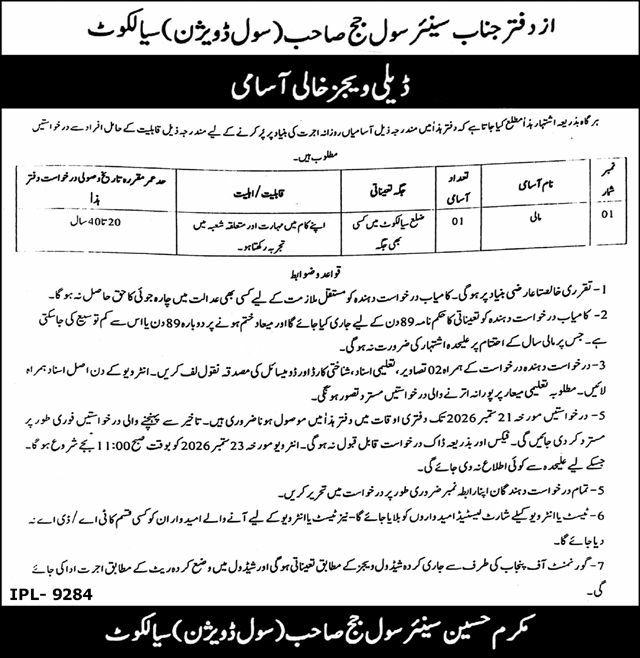 از دفتر جناب سینئر سول جج صاحب (سول ڈویژن) سیالکوٹ
ڈیلی ویجز خالی آسامی
ہر گاہ بذریعہ اشتہار ہذا مطلع کیا جاتا ہے کہ دفتر ہذا میں مندرجہ ذیل آسامیاں روزانہ اجرت کی بنیاد پر پُر کرنے کے لیے مندرجہ ذیل قابلیت کے حامل افراد سے درخواستیں
مطلوب ہیں۔
نمبر شمار نام آسامی تعداد آسامی جگہ تعیناتی قابلیت/اہلیت حد عمر مقررہ تاریخ وصولی درخواست دفتر ہذا
01 مالی 01 ضلع سیالکوٹ میں کسی بھی جگہ اپنے کام میں مہارت اور متعلقہ شعبہ میں تجربہ رکھتا ہو۔ 20 تا 40 سال
قواعد و ضوابط
1- تقرری خالصتاً عارضی بنیاد پر ہوگی۔ کامیاب درخواست دہندہ کو مستقل ملازمت کے لیے کسی بھی عدالت میں چارہ جوئی کا حق حاصل نہ ہوگا۔
2- کامیاب درخواست دہندہ کو تعیناتی کا حکم نامہ 89 دن کے لیے جاری کیا جائے گا اور میعاد ختم ہونے پر دوبارہ 89 دن یا اس سے کم توسیع کی جاسکتی
ہے۔ جس پر مالی سال کے اختتام پر علیحدہ اشتہار کی ضرورت نہ ہوگی۔
3- درخواست دہندہ درخواست کے ہمراہ 02 تصاویر، تعلیمی اسناد، شناختی کارڈ اور ڈومیسائل کی مصدقہ نقول لف کریں۔ انٹرویو کے دن اصل اسناد ہمراہ
لائیں۔ مطلوبہ تعلیمی معیار پر پورا نہ اترنے والی درخواستیں مسترد تصور ہونگی۔
5- درخواستیں مورخہ 21 ستمبر 2026 تک دفتری اوقات میں دفتر ہذا میں موصول ہونا ضروری ہیں۔ تاخیر سے پہنچنے والی درخواستیں فوری طور پر
مسترد کر دی جائیں گی۔ فیکس اور بذریعہ ڈاک درخواست قابل قبول نہ ہوگی۔ انٹرویو مورخہ 23 ستمبر 2026 کو بوقت صبح 11:00 بجے شروع ہوگا۔
جسکے لیے علیحدہ سے کوئی اطلاع نہ دی جائے گی۔
5- تمام درخواست دہندگان اپنا رابطہ نمبر ضروری طور پر درخواست میں تحریر کریں۔
6- ٹیسٹ یا انٹرویو کیلئے شارٹ لیسٹیڈ امیدواروں کو بلایا جائے گا۔ نیز ٹیسٹ یا انٹرویو کے لیے آنے والے امیدوار ان کو کسی قسم کا ٹی اے / ڈی اے نہ
دیا جائے گا۔
7- گورنمنٹ آف پنجاب کی طرف سے جاری کردہ شیڈول ویجز کے مطابق تعیناتی ہوگی اور شیڈول میں وضع کردہ ریٹ کے مطابق اجرت ادا کی جائے
گی۔
IPL- 9284
مکرم حسین سینئر سول جج صاحب (سول ڈویژن) سیالکوٹ